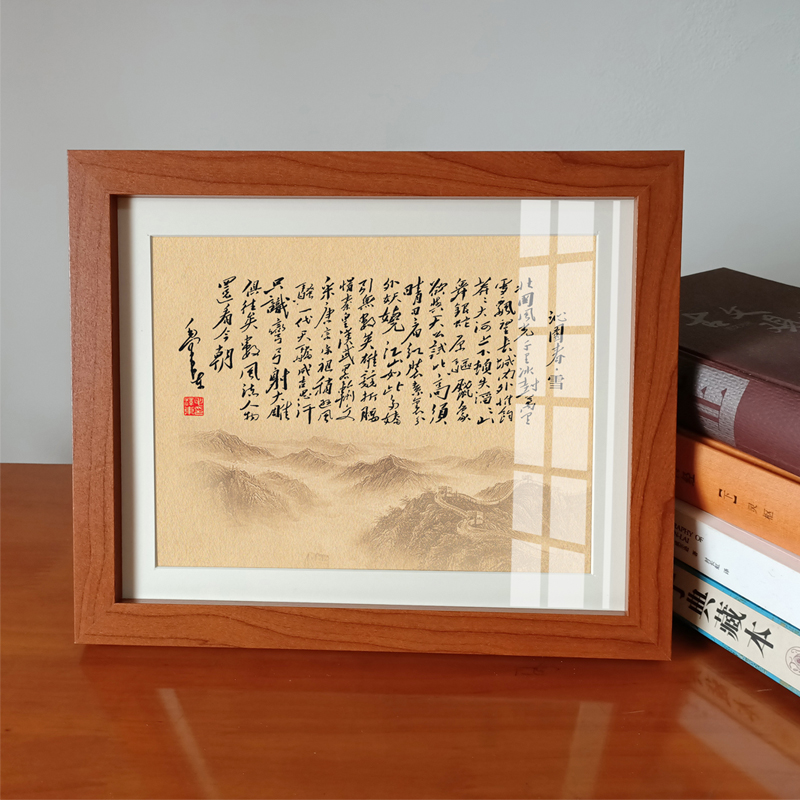 沁園春·雪
北國風光千里冰封萬里
雪飄望長城内外惟餘
莽々大河上下頓失滔々山
舞銀蛇原驅臘象
欲與天公試比高須
晴日看紅裝素裹分
外妖嬈江山如此多嬌
引無數英雄競折腰
惜秦皇漢武略輸文
采唐宗宋祖稍遜風
騷一代天驕成吉思汗
只識彎弓射大雕
俱往矣數風流人物
還看今朝
毛澤東
【下】
典藏本